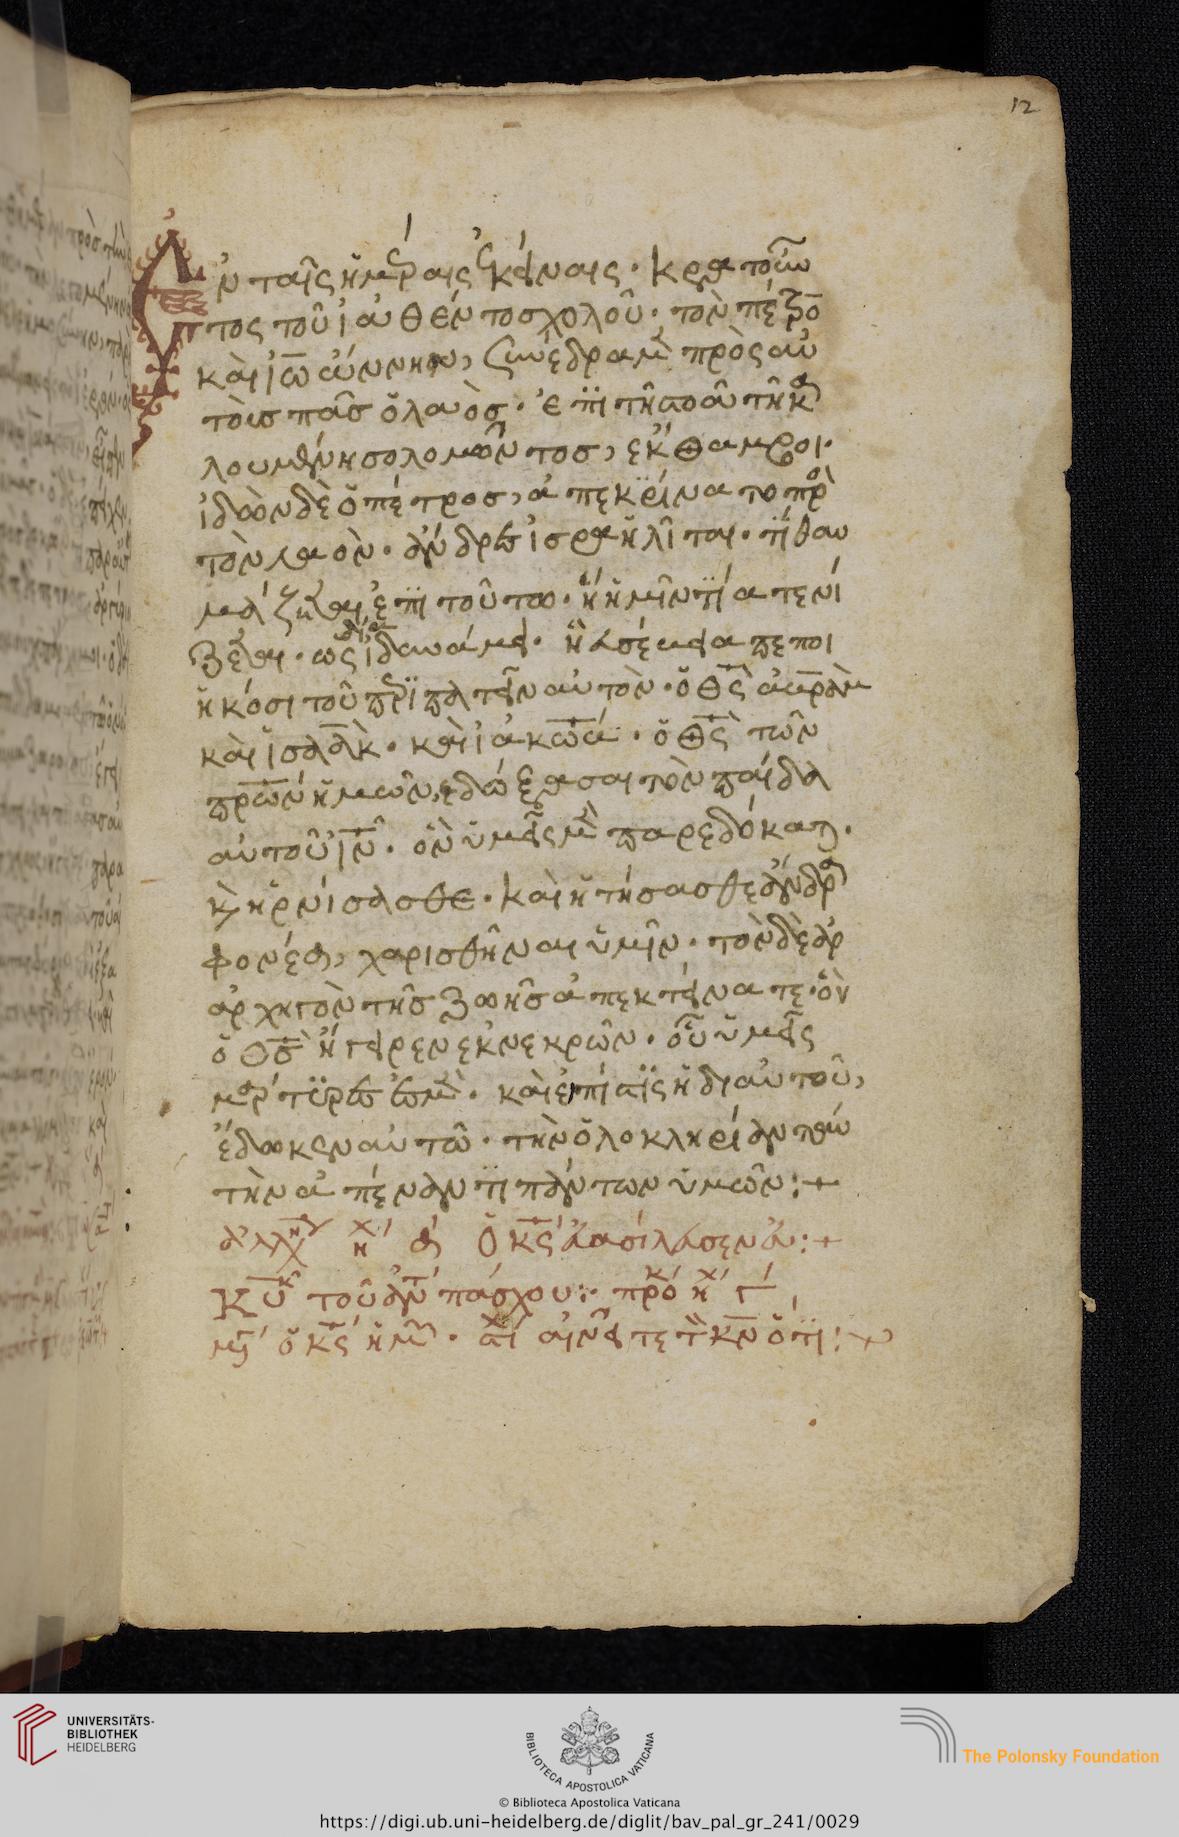 12
Ἐν ταῖς ἡμέραις ἐκείναις· κρατοῦν
τος τοῦ ἰαθέντος χολοῦ· τὸν πέτρο
καὶ ἰωάννην, συνέδραμε πρὸς αὐ
τοὺς πᾶς ὁ λαὸς· ἐπὶ τῆ στοᾶ τῆ κα
λουμένη σολομῶντος, ἔκθαμβοι·
ἰδὼν δὲ ὁ πέτρος, ἀπεκρίνατο πρὸ
τὸν λαὸν· ἄνδρες ἰσραηλῖται· τί θαυ
μάζετε ἐπὶ τούτω· ἢ ἡμῖν τί ἀτενί
ζετε· ὡς ἰδία δυνάμει· ἢ εὐσεβεία πεποι
ηκόσι τοῦ περιπατεῖν αὐτὸν· ὁ θς ἀβραὰμ
καὶ ἰσαὰκ· καὶ ἰακώβ· ὁ θς τῶν
πρων ἡμῶν, ἐδόξασε τὸν παῖδα
αὐτοῦ ιν· ὃν ὑμεῖς μὲν παρεδώκατε·
κ ἠρνίσασθε· καὶ ἠτήσασθε ἄνδρα
φονέα, χαρισθῆναι ὑμῖν· τὸν δὲ
ἀρχηγὸν τῆς ζωῆς ἀπεκτείνατε· ὃν
ὁ θς ἤγειρεν ἐκ νεκρῶν· οὗ ὑμεῖς
μάρτυρες ἐσμὲν· καὶ ἡ πίστις ἡ δι αὐτοῦ,
ἔδωκεν αὐτῶ· τὴν ὁλοκληρίαν ταύ
την ἀπέναντι πάντων ὑμῶν:+
ὁ κς ἐβασίλευσεν:+
Κυ τοῦ ἀντιπάσχου:
ὁ κς ἡμῶν· αἰνεῖτε τὸν κν ὅτι:+
UNIVERSITÄTS-
BIBLIOTHEK
HEIDELBERG
BIBLIOTECA APOSTOLICA VATICANA
The Polonsky Foundation
© Biblioteca Apostolica Vaticana
https://digi.ub.uni-heidelberg.de/diglit/bav_pal_gr_241/0029